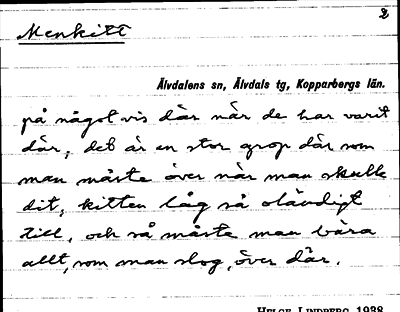 2
Menkitt
Älvdalens sn, Älvdals tg, Kopparbergs län.
på något vis där når de har varit
där, det är en stor grop där som
man måste över när man skulle
dit, kitten låg så oländigt
till, och så måste man bära
allt, som man slog, över där.
HELGE LINDBERG 1938